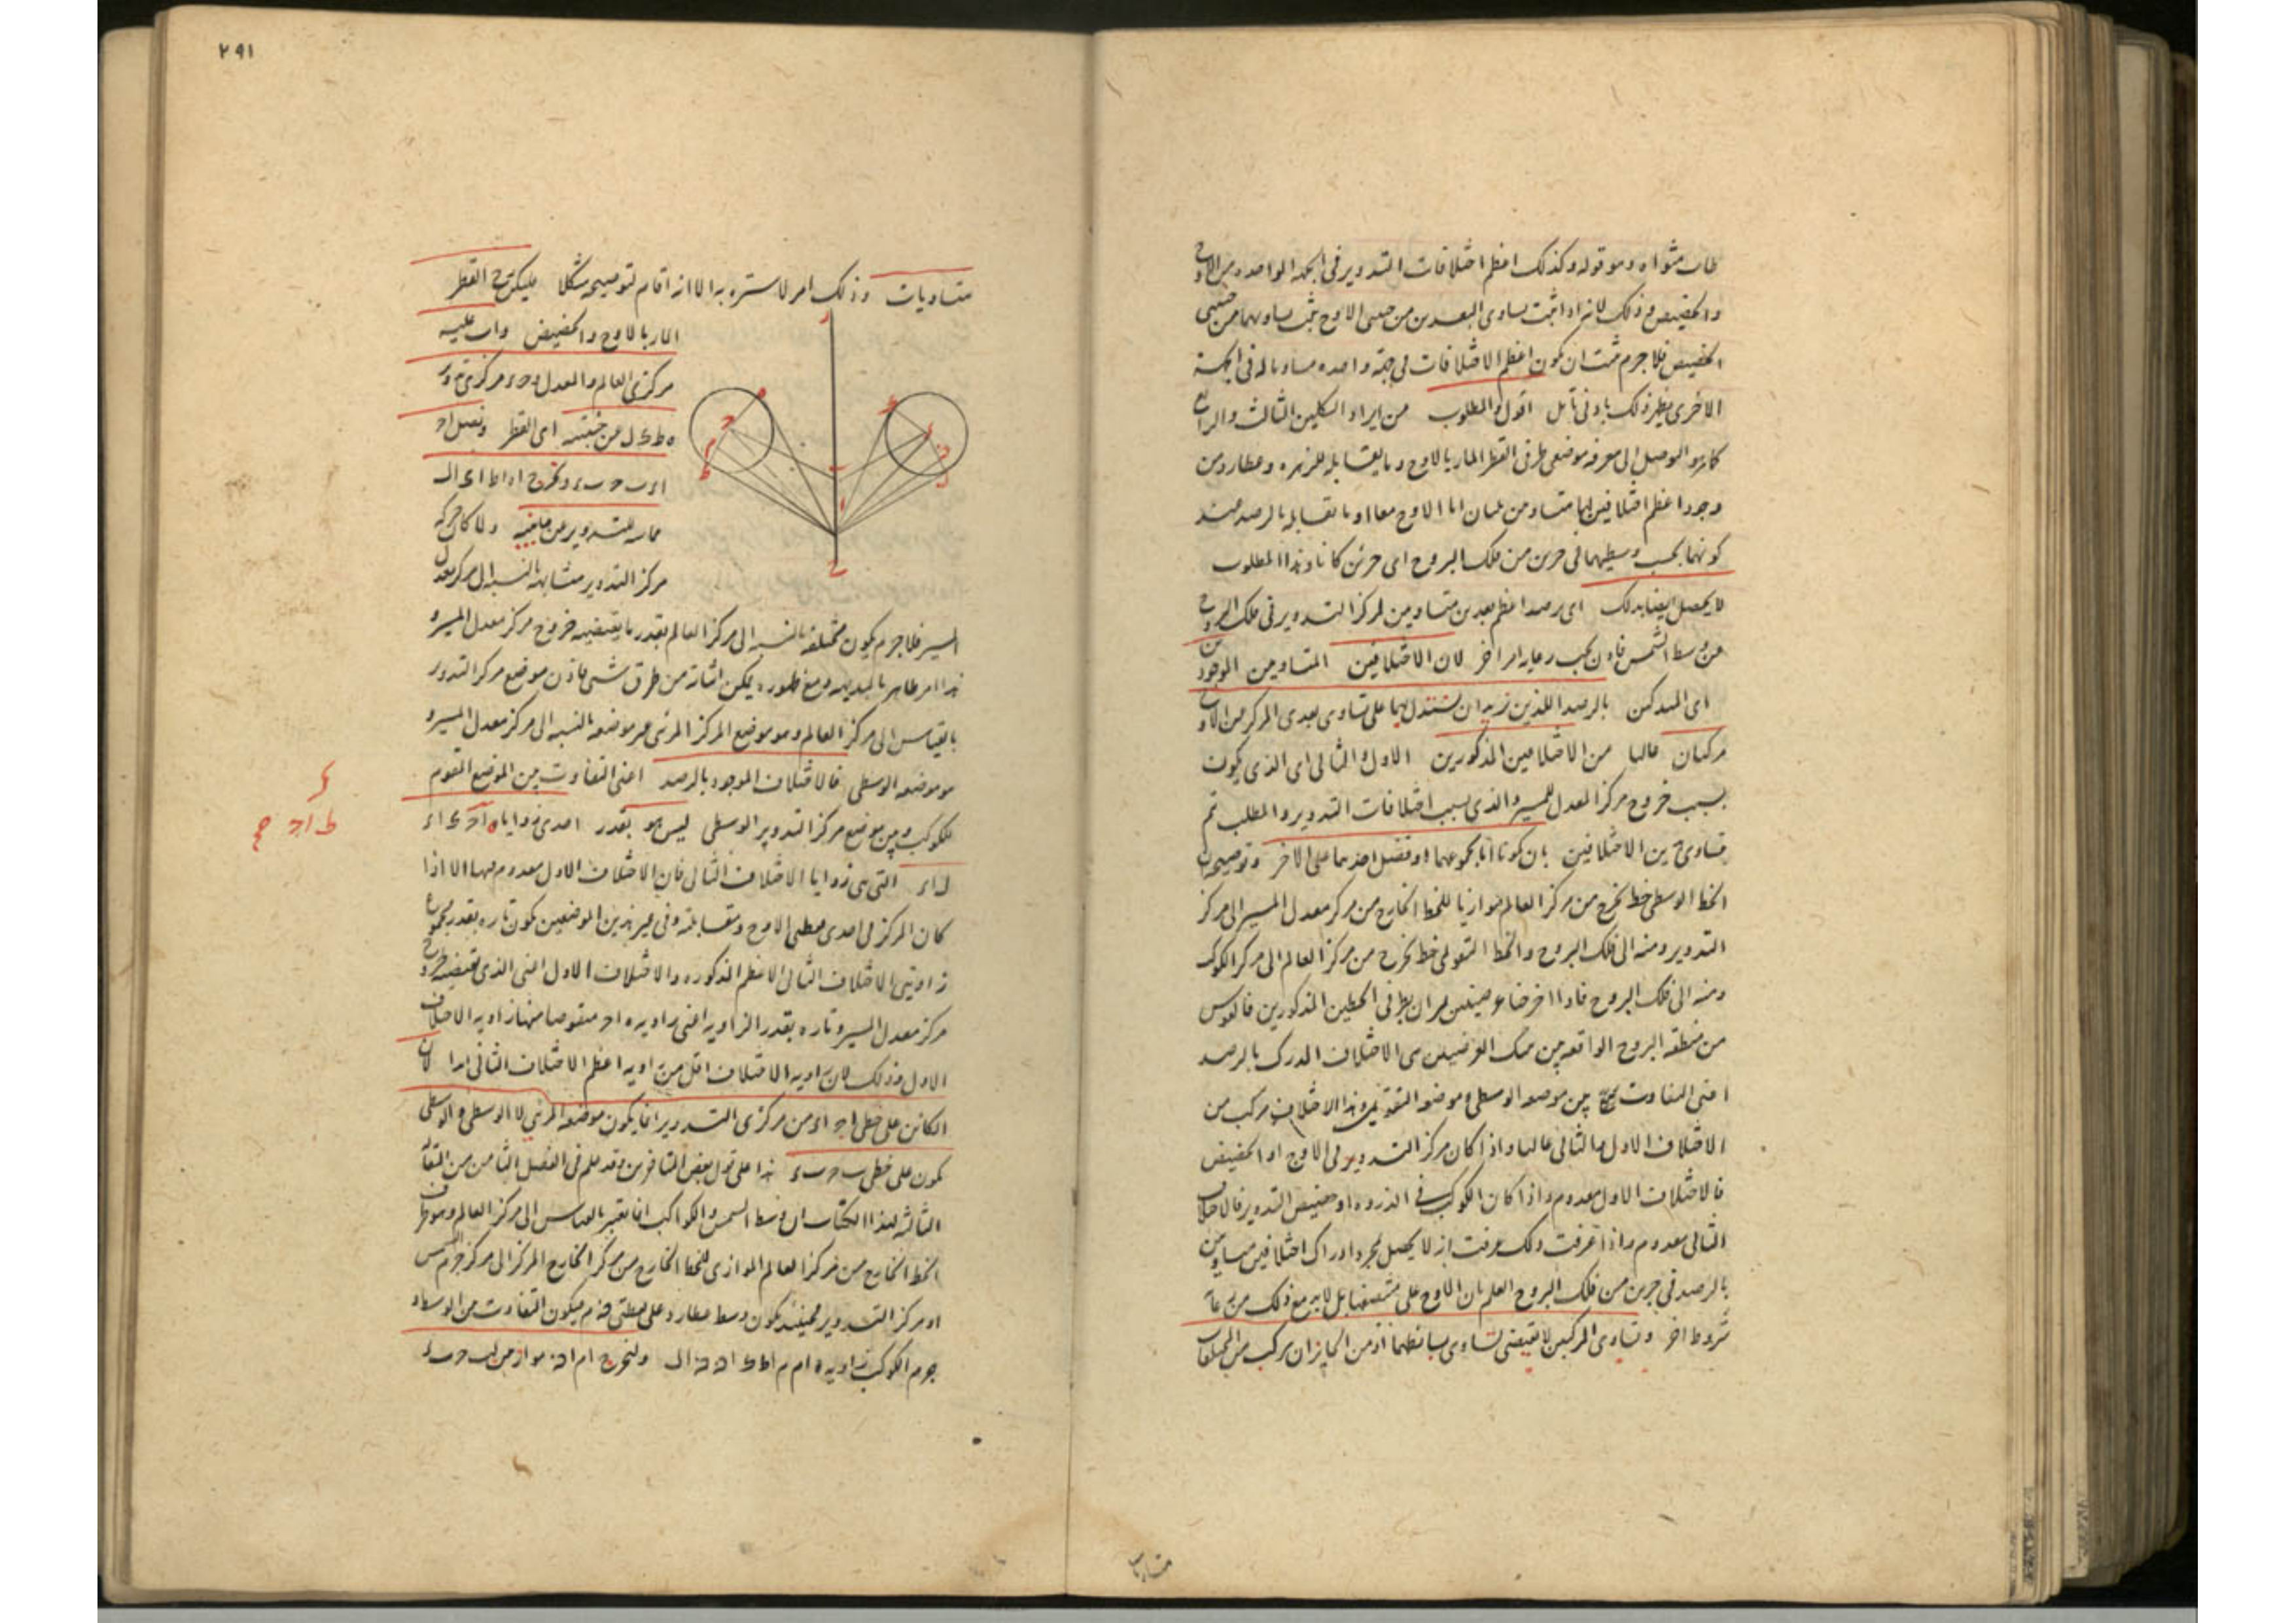 وكذلك اعظم اختلافات التدوير فى الجهة الواحدة من الاوج
والحضيض وذلك لانه اذا ثبت تساوى البعدين من جنبتى الاوج ثبت تساويهما من جنبتى
الحضيض فلا جرم ثبت ان يكون اعظم الاختلافات فى جهة واحدة مساويا له فى الجهة
الاخرى يظهر ذلك بادنى تأمل اقول والمطلوب من ايراد الشكلين الثالث والرابع
كما مر التوصل الى معرفة موضعى طرفى القطر المار بالاوج وما يقابله للزهرة وعطارد من
وجود اعظم اختلافين لهما متساويين اما الاوج معا او ما يقابله بالرصد عند
كونهما بحسب وسطيهما فى جزئين من فلك البروج اى جزئين كانا وهذا المطلوب
لا يحصل ايضا بذلك اى برصد اعظم بعدين متساويين لمركز التدوير فى فلك البروج
عن وسط الشمس فاذن يجب رعاية امر اخر لان الاختلافين المتساويين الموجودين
اى المدركين بالرصد اللذين نريد ان نستدل بهما على تساوى بعدى المركز من الاوج
مركبان غالبا من الاختلافين المذكورين الاول والثانى اى الذى يكون
بسبب خروج مركز المعدل للمسير والذى بسبب اختلافات التدوير والمطلب تم
بتساوى الاختلافين بان كونا اما مجموعهما او فضل احدهما على الاخر وتوضيحه ان
الخط الوسطى خط يخرج من مركز العالم موازيا للخط الخارج من مركز معدل المسير الى مركز
التدوير ومنه الى فلك البروج والخط التقويمى خط يخرج من مركز العالم الى مركز الكوكب
ومنه الى فلك البروج فاذا فرضنا عرضيتين تمران بطرفى الخطين المذكورين فالقوس
من منطقة البروج الواقعة بين تلك العرضيتين هى الاختلاف المدرك بالرصد
اعنى التفاوت بين موضعه الوسطى وموضعه التقويمى وهذا الاختلاف مركب من
الاختلاف الاول والثانى غالبا واذا كان مركز التدوير فى الاوج او الحضيض
فالاختلاف الاول معدوم واذا كان الكوكب فى الذروة او حضيض التدوير فالاختلاف
الثانى معدوم واذا عرفت ذلك عرفت انه لا يحصل بمجرد ادراك اختلافين متساويين
بالرصد فى جزئين من فلك البروج العلم بان الاوج على منتصفهما بل لابد مع ذلك من رعاية
شروط اخر وتساوى المركبين لا يقتضى تساوى بسائطهما اذ من الجائز ان يركب من المختلفات
متساويات
٢٩١
متساويات وذلك امر لا سترة به الا انه اقام لتوضيحه شكلا فليكن ج القطر
المار بالاوج والحضيض واب عليه
مركزى العالم والمعدل و ح ء مركزى تدوير
ه ط ك ل عن جنبتيه اى القطر ونصل ا ح
ا ء ب ح ب ء ونخرج ا ه ا ط ا ك ا ل
مماسة للتدوير من جانبيه ولما كان حركة
مركز التدوير متشابهة بالنسبة الى مركز معدل
المسير فلا جرم يكون مختلفة بالنسبة الى مركز العالم بقدر ما يقتضيه خروج مركز معدل المسير و
هذا امر ظاهر بالبديهة ومع ظهوره يمكن اثباته من طرق شتى فاذن موضع مركز التدوير
بالقياس الى مركز العالم وهو موضع المركز المرئى غير موضعه بالنسبة الى مركز معدل المسير و
هو موضعه الوسطى فالاختلاف الموجود بالرصد اعنى التفاوت بين الموضع المقوم
للكوكب وبين موضع مركز التدوير الوسطى ليس هو بقدر احدى زوايا ه ا ح ك ا ء
ل ا ء التى هى زوايا الاختلاف الثانى فان الاختلاف الاول معدوم فيها الا اذا
كان المركز فى احدى نقطتى الاوج ومقابلته وفى غير هذين الموضعين يكون تارة بقدر مجموع
زاويتى الاختلاف الثانى الاعظم المذكورة والاختلاف الاول اعنى الذى يقتضيه خروج
مركز معدل المسير وتارة بقدر الزاوية اعنى زاوية ه ا ح منقوصا منها زاوية الاختلاف
الاول وذلك لان زاوية الاختلاف اقل من زاوية اعظم الاختلاف الثانى ابدا لان
الكائن على خطى ا ح ا ء من مركزى التدوير انما يكون موضعه المرئى لا الوسطى والوسطى
يكون على خطى ب ح ب ء هذا على قول بعض المتأخرين وقد علم فى الفصل الثامن من المقالة
الثالثة لهذا الكتاب ان وسط الشمس والكواكب انما يعتبر بالقياس الى مركز العالم وهو طرف
الخط الخارج من مركز العالم الموازى للخط الخارج من مركز الخارج المركز الى مركز جرم الشمس
او مركز التدوير فحينئذ يكون وسط عطارد على نقطتى ن م فيكون التفاوت من الوسط او
جرم الكوكب زاوية ه ا م م ا ط ك ا ن ن ا ل ولنخرج ا م ا ن موازيين لب ح ب ء
ط ا ح صح